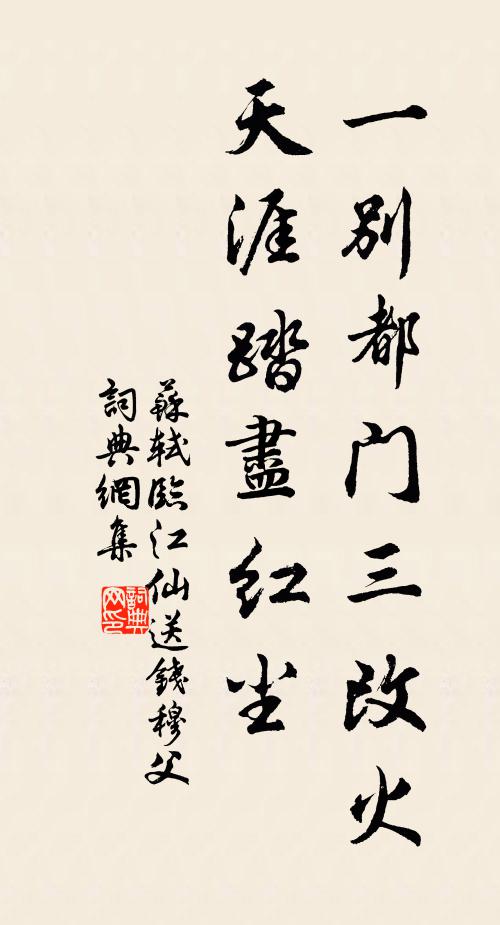 一别都门三改火
天涯踏盡红尘
蘇軾臨江仙送錢穆父
詞典網集
詞典网印